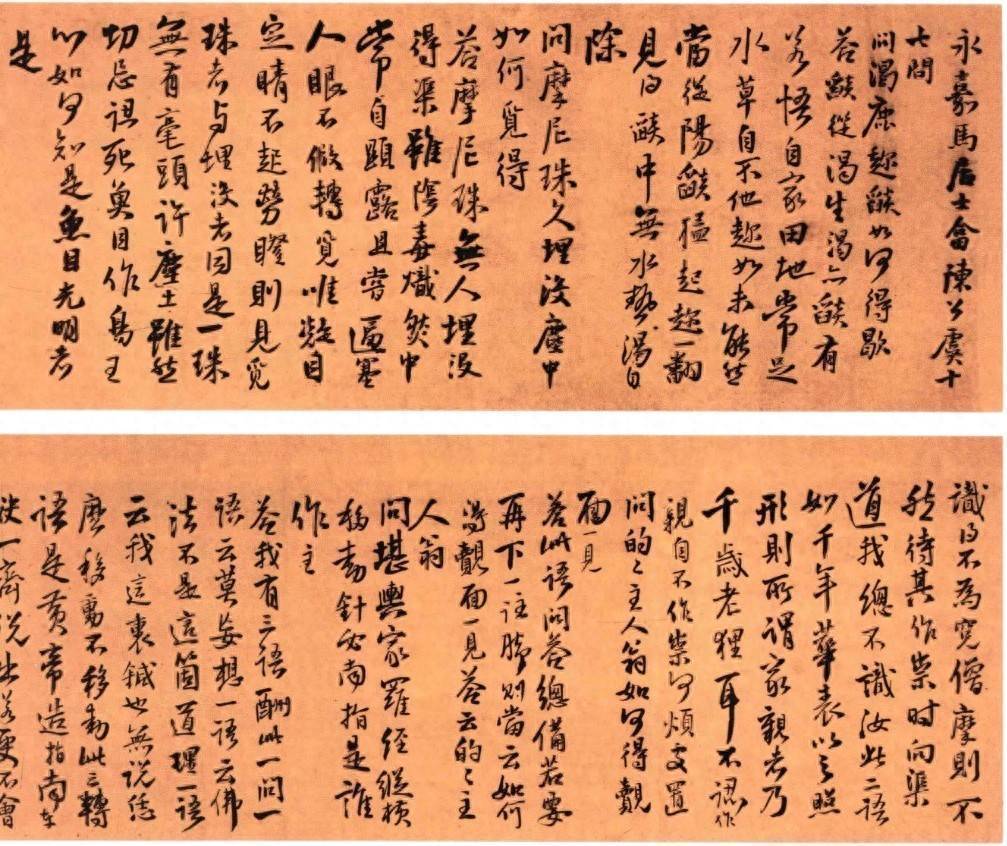 永嘉馬居士畣陳公虞十
七問
問渴鹿趂燄如何得歇
荅燄從渴生渴亡燄有
若悟自家田地常足
水草自不他趂如未能然
當從陽燄猛起趂一翻
見得燄中無水勢渴自
除
問摩尼珠久埋没塵中
如何覓得
荅摩尼珠無人埋没
得渠雖陰毒熾然中
常自顯露且嘗逼塞
人眼不儌轉覓唯凝目
定睛不起勞瞪則見覓
珠者与埋没者同是一珠
無有毫頭許塵土雖然
切忌誤死奠目作鳥王
如何知是魚目光明者
是
識得不為冤僧摩則不
然待其作祟时向渠
道我總不識汝此二語
如千年華表以之照
形則所謂家親者乃
千歲老狸耳不認作
親自不作祟何煩安置
問的之主人翁如何得覿
面一見
荅此語問荅總備若要
再下一註脚则當云如何
得覿面一見荅云的之主
人翁
問堪輿家羅经縱横
移動針必南指是誰
作主
荅我有三語酬此一問一
語云莫妄想一语云佛
法不是這箇道理一語
云我這裏鍼也無説恁
麽移動不移動此三轉
语是黄帝造指南車
一齊说出若更不會